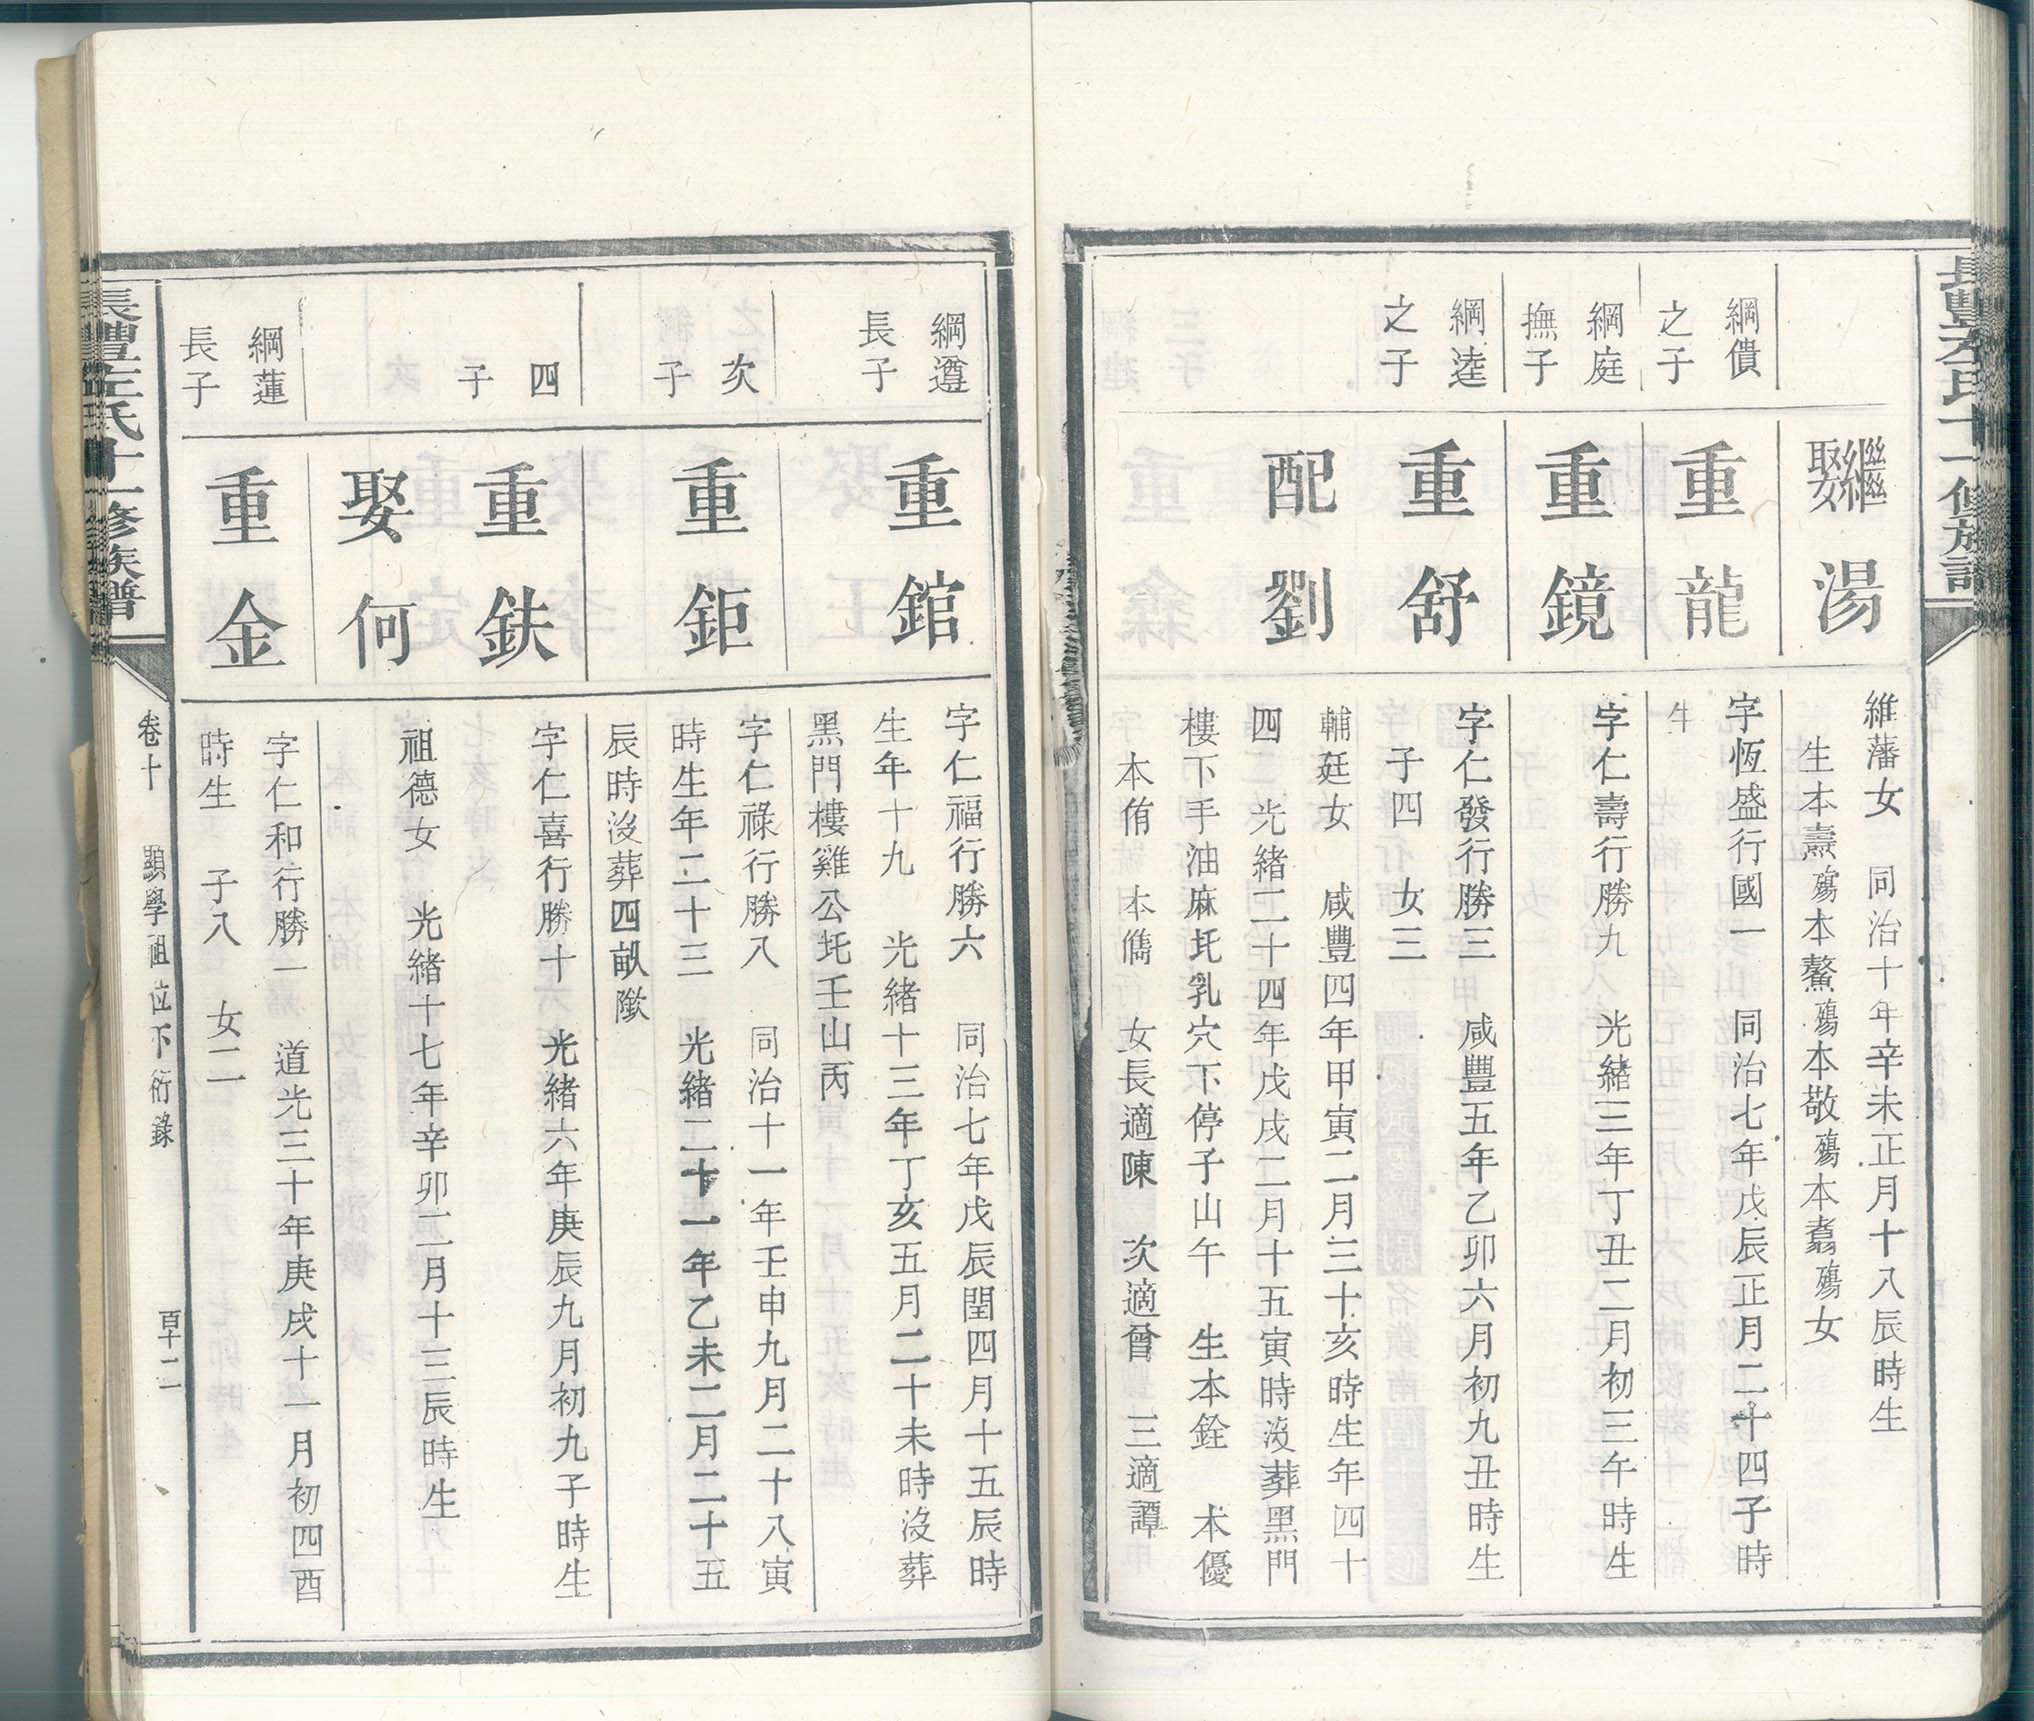 繼娶湯
維藩女　同治十年辛未正月十八辰時生
生本燾殤本鰲殤本敬殤本翥殤女
綱僓
之子
重龍
字恆盛行國一　同治七年戊辰正月二十四子時
生
綱庭
撫子
重鏡
字仁壽行勝九　光緒三年丁丑二月初三午時生
綱逵
之子
重舒
字仁發行勝三　咸豐五年乙卯六月初九丑時生
子四　女三
配劉
輔廷女　咸豐四年甲寅二月三十亥時生年四十
四　光緒二十四年戊戌二月十五寅時沒葬黑門
樓下手油麻圫乳穴下停子山午　生本銓　本優
本侑　本儁　女長適陳　次適曾　三適譚
綱遵
長子
重錧
字仁福行勝六　同治七年戊辰閏四月十五辰時
生年十九　光緒十三年丁亥五月二十未時沒葬
黑門樓雞公圫壬山丙
次
子
重鉅
字仁祿行勝八　同治十一年壬申九月二十八寅
時生年二十三　光緒二十一年乙未二月二十五
辰時沒葬四畝
四
子
重鈇
字仁喜行勝十　光緒六年庚辰九月初九子時生
娶何
祖德女　光緒十七年辛卯二月十三辰時生
綱蓮
長子
重金
字仁和行勝一　道光三十年庚戌十一月初四酉
時生　子八　女二
長豐左氏十一修族譜
卷十　顯學祖位下衍錄　百十二